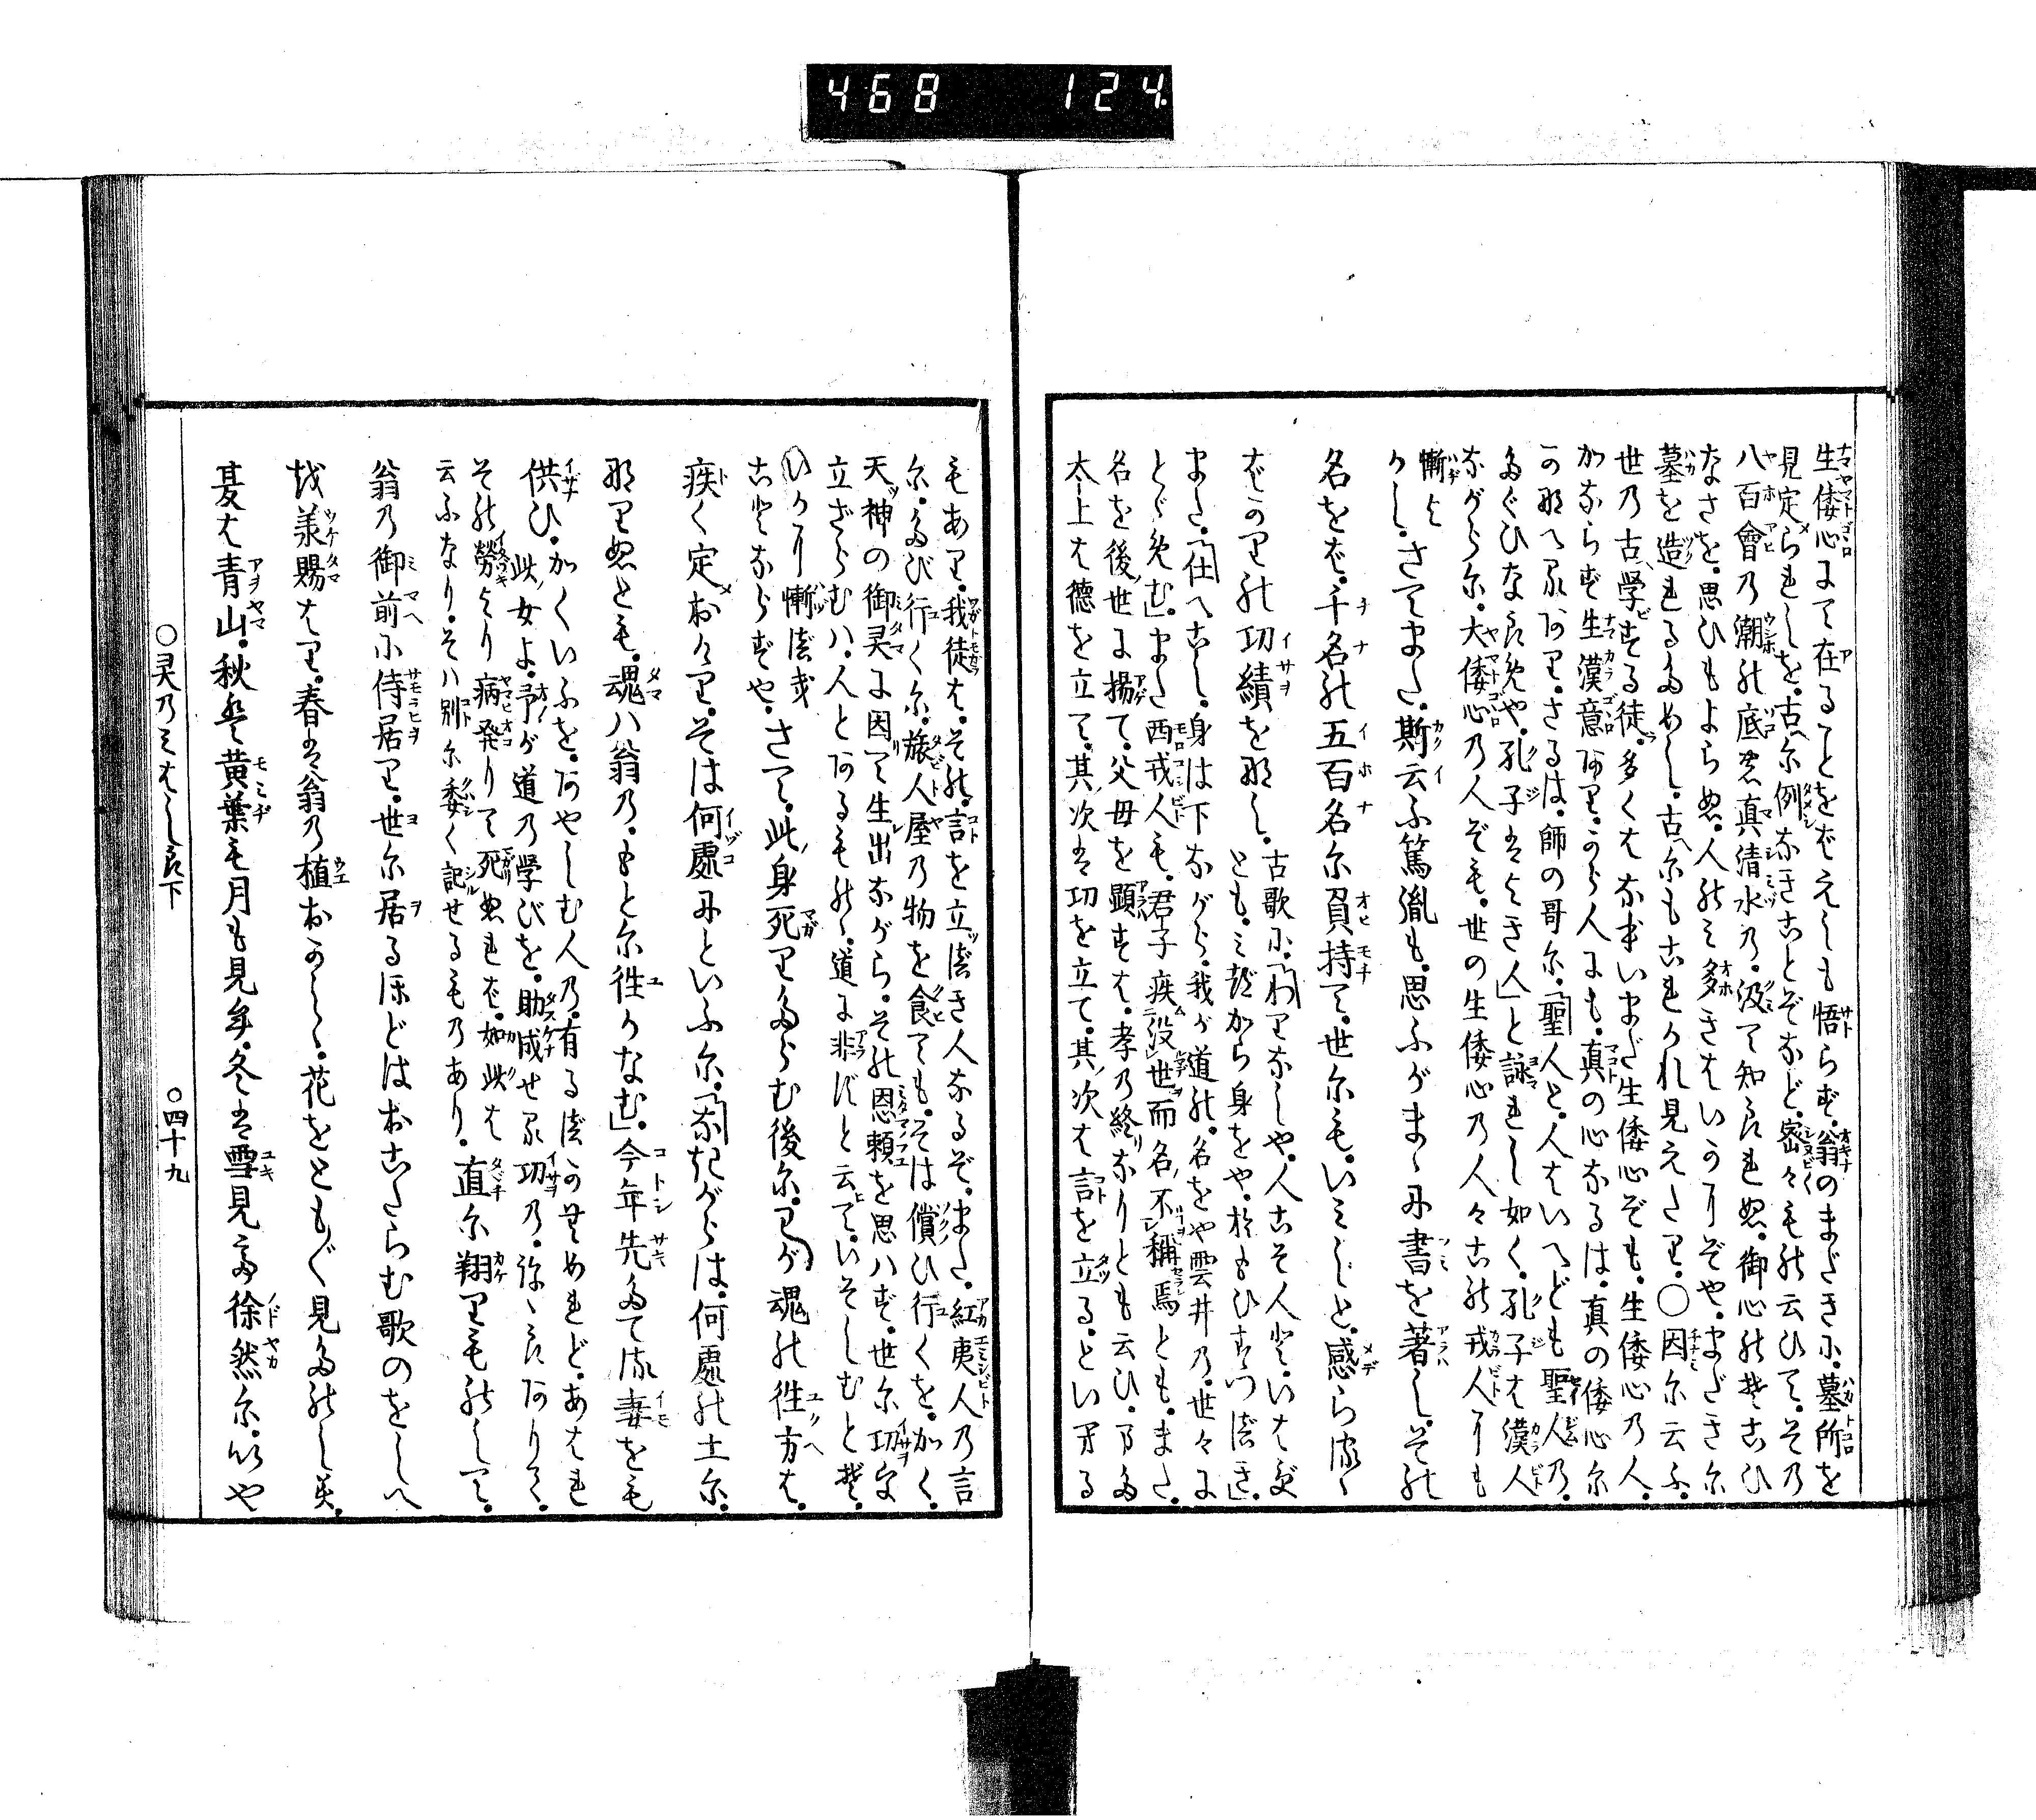 468 124
生倭心にて在ることをばえしも悟らず。翁のまだきに。墓所を
見定められしを。古に例なきことぞなど。密々もの云ひて。その
八百會の潮の底の真清水の。汲て知られぬ。御心のそこひ
なさを。思ひもよらぬ。人のみ多きはいかにぞや。まだきに
墓を造れるためし。古にもこれかれ見えたり。○因に云ふ。
世の古學びする徒。多くはなほいまだ生倭心ぞも。生倭心の人。
かならず生漢意あり。から人にも。真の心なるは。真の倭心に
かなへるあり。さるは。師の哥に。「聖人と。人はいへども聖人の。
たぐひならめや。孔子はよき人」と詠れし如く。孔子は漢人
ながらに。大倭心の人ぞも。世の生倭心の人々この戎人にも
慚よ
かし。さてまた。斯云ふ篤胤も。思ふがまゝに書を著し。その
名をば。千名の五百名に負持て。世にも。いみじと。感らるゝ
ばかりの功績を那し。
古歌に。「わりなしや。人こそ人と。いはず
とも。みづから身をや。おもひすつべき」。
また。「仕へこし。身は下ながら。我が道の。名をや雲井の。世々に
とゞめむ」。また西戎人も。君子疾没世而名不稱焉とも。また。
名を後世に揚て。父母を顕すは。孝の終なりとも云ひ。また
太上は徳を立て。其次は功を立て。其次は言を立る。といへる
もあり。我徒は。その。言を立べき人なるぞ。また。紅夷人の言
に。たび行くに。旅人屋の物を食ても。そは償ひ行くを。かく。
天神の御霊に因て生出ながら。その恩頼を思ハず。世に功を
立ざらむハ。人とあるものゝ道に非ずと云て。いそしむとぞ。
いかに慚べき
ことならずや。さて。此身死りたらむ後に。わが魂の往方は。
疾く定めおけり。そは何處にといふに。「なきがらは。何處の土に。
那りぬとも。魂ハ翁の。もとに往かなむ」。今年先たてる妻をも
供ひ。
かくいふを。あやしむ人の。有るべかむめれど。あはれ
此女よ。予が道の学びを。助成せる功の。こゝらありて。
その勞より病発りて死ぬれば。如此は
云ふなり。そハ別に委く記せるものあり。
直に翔りものして。
翁の御前に侍居り。世に居るほどはおこたらむ歌のをしへ
を承賜はり。春は翁の植おかしゝ。花をともゞ見たのしみ。
夏は青山。秋は黄葉も月も見む。冬は雪見て徐然に。いや
○灵乃みはしら下　○四十九